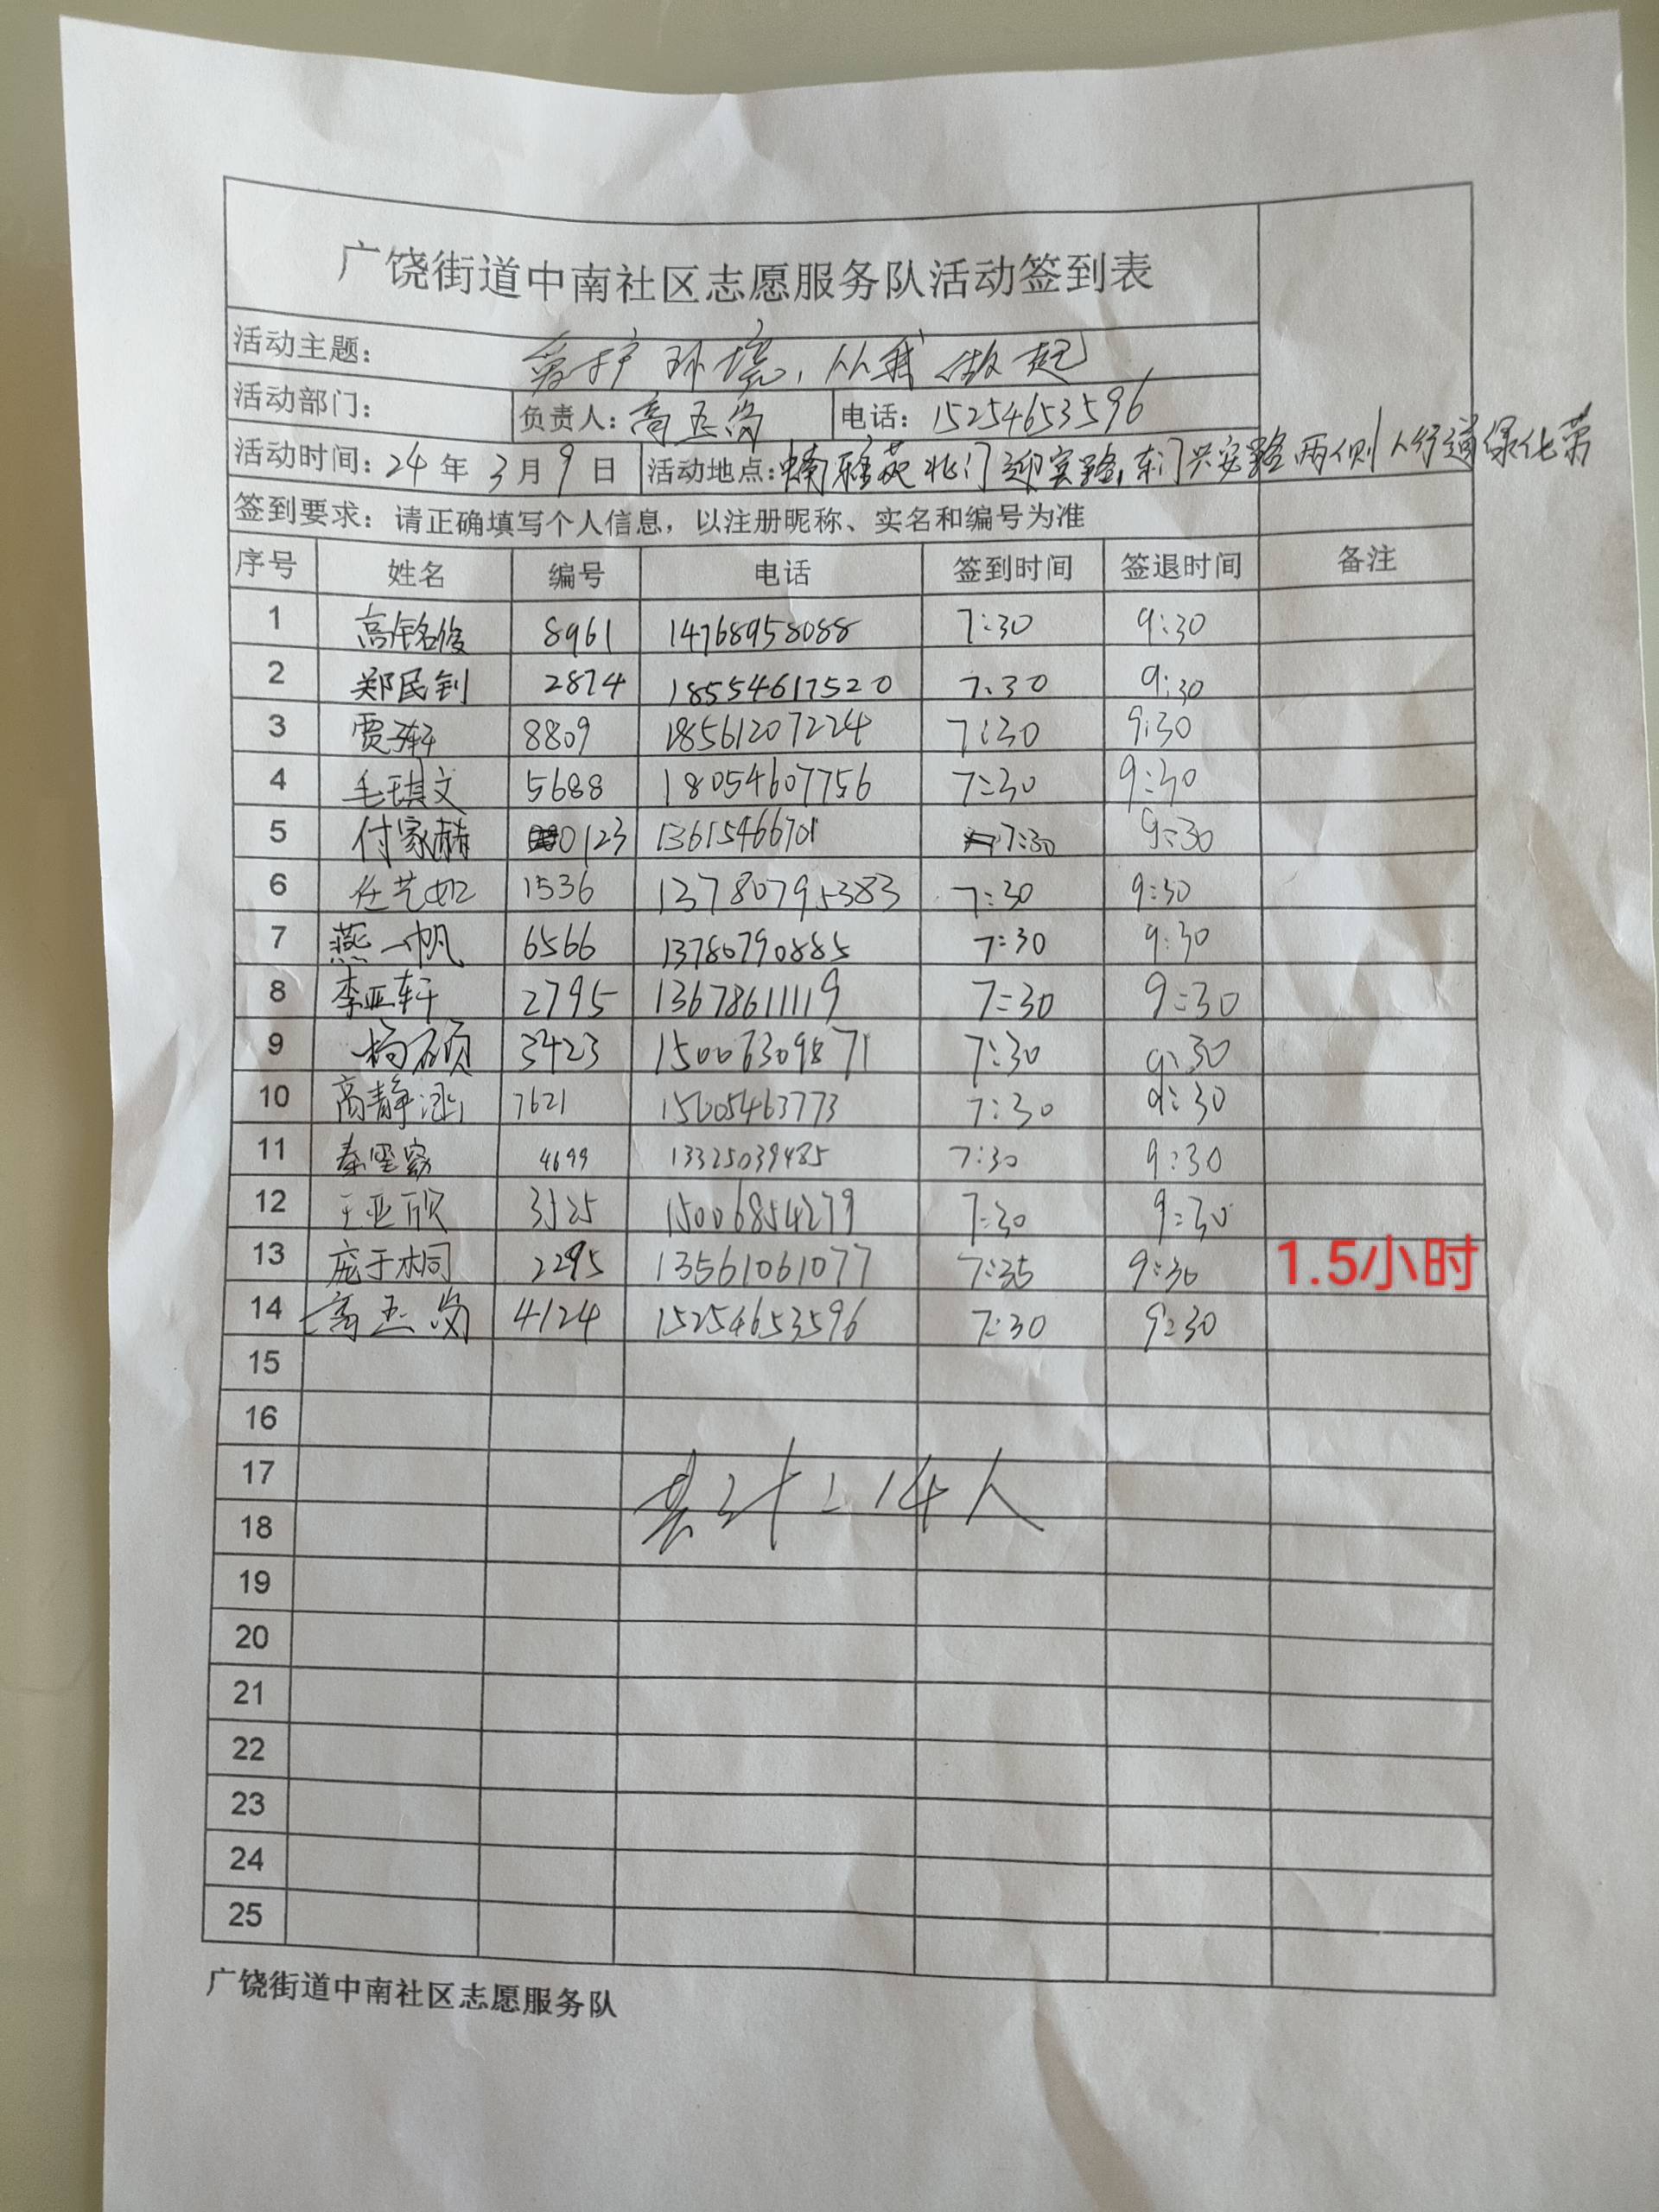 广饶街道中南社区志愿服务队活动签到表
活动主题： 爱护环境，从我做起
活动部门： 负责人：高玉岗 电话：15254653596
活动时间：24年3月9日 活动地点：雅苑北门迎宾路，东门兴安路两侧人行道绿化带
签到要求：请正确填写个人信息，以注册昵称、实名和编号为准
序号 姓名 编号 电话 签到时间 签退时间 备注
1 高铭俊 8961 14768958088 7:30 9:30
2 郑民钊 2874 18554617520 7:30 9:30
3 贾轩 8809 18561207224 7:30 9:30
4 毛琪文 5688 18054607756 7:30 9:30
5 付家赫 0123 13615466701 7:30 9:30
6 任艺如 1536 13780795383 7:30 9:30
7 燕一帆 6566 13780790885 7:30 9:30
8 李亚轩 2795 13678611119 7:30 9:30
9 杨硕 3423 15006309871 7:30 9:30
10 高静涵 7621 15005463773 7:30 9:30
11 秦 4699 13325039485 7:30 9:30
12 王亚欣 3525 15006854279 7:30 9:30
13 庞于桐 2295 13561061077 7:35 9:30 1.5小时
14 高玉岗 4124 15254653596 7:30 9:30
15
16
17
共计：14人
18
19
20
21
22
23
24
25
广饶街道中南社区志愿服务队